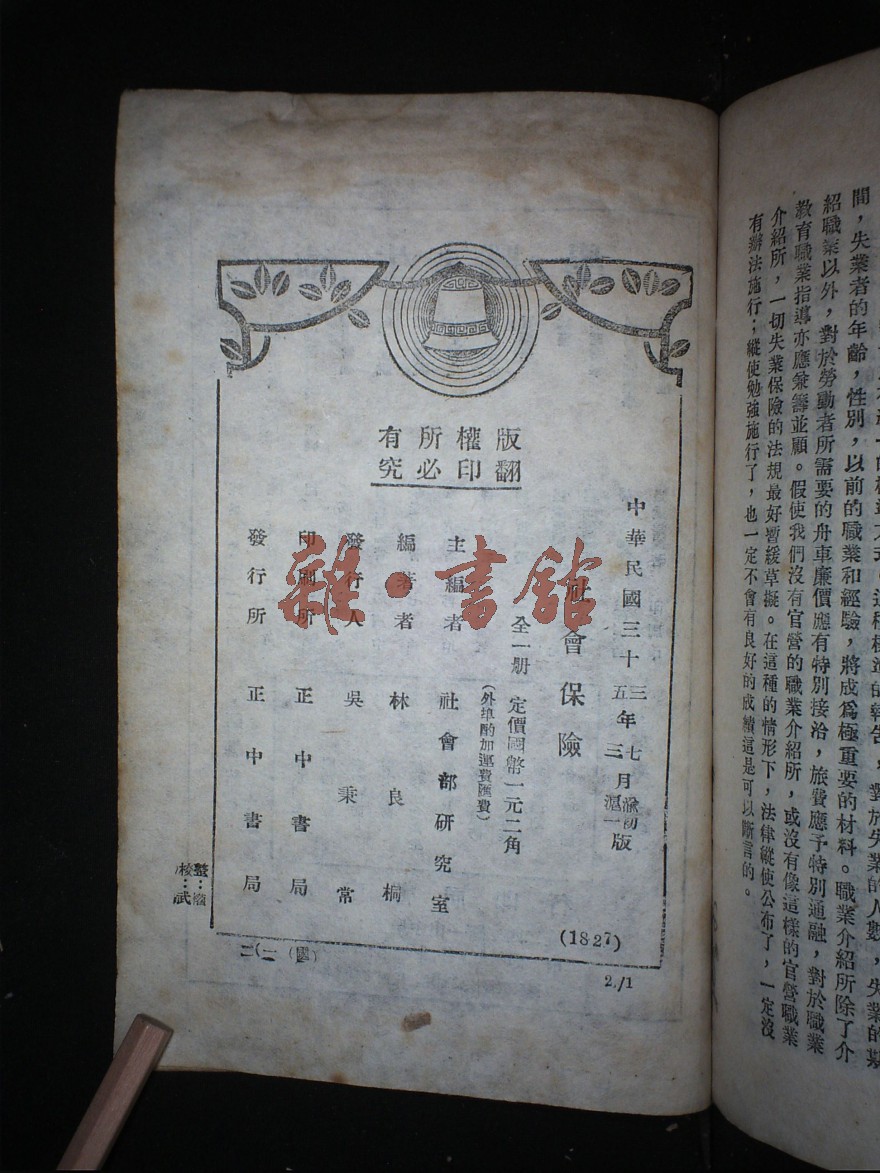 版權所有
翻印必究
中華民國三十三年七月渝初版
五年三月滬一版
社會保險
全一册 定價國幣一元二角
(外埠酌加運費匯費)
主編者 社會部研究室
編著者 林良桐
發行人 吳秉常
印刷所 正中書局
發行所 正中書局
(1827)
2/1
校：武
雜·書館
間，失業者的年齡，性別，以前的職業和經驗，將成爲極重要的材料。職業介紹所除了介
紹職業以外，對於勞動者所需要的舟車廉價應有特別接洽，旅費應予特別通融，對於職業
教育職業指導亦應兼籌並顧。假使我們沒有官營的職業介紹所，或沒有像這樣的官營職業
介紹所，一切失業保險的法規最好暫緩草擬。在這種的情形下，法律縱使公布了，一定沒
有辦法施行；縱使勉強施行了，也一定不會有良好的成績這是可以斷言的。